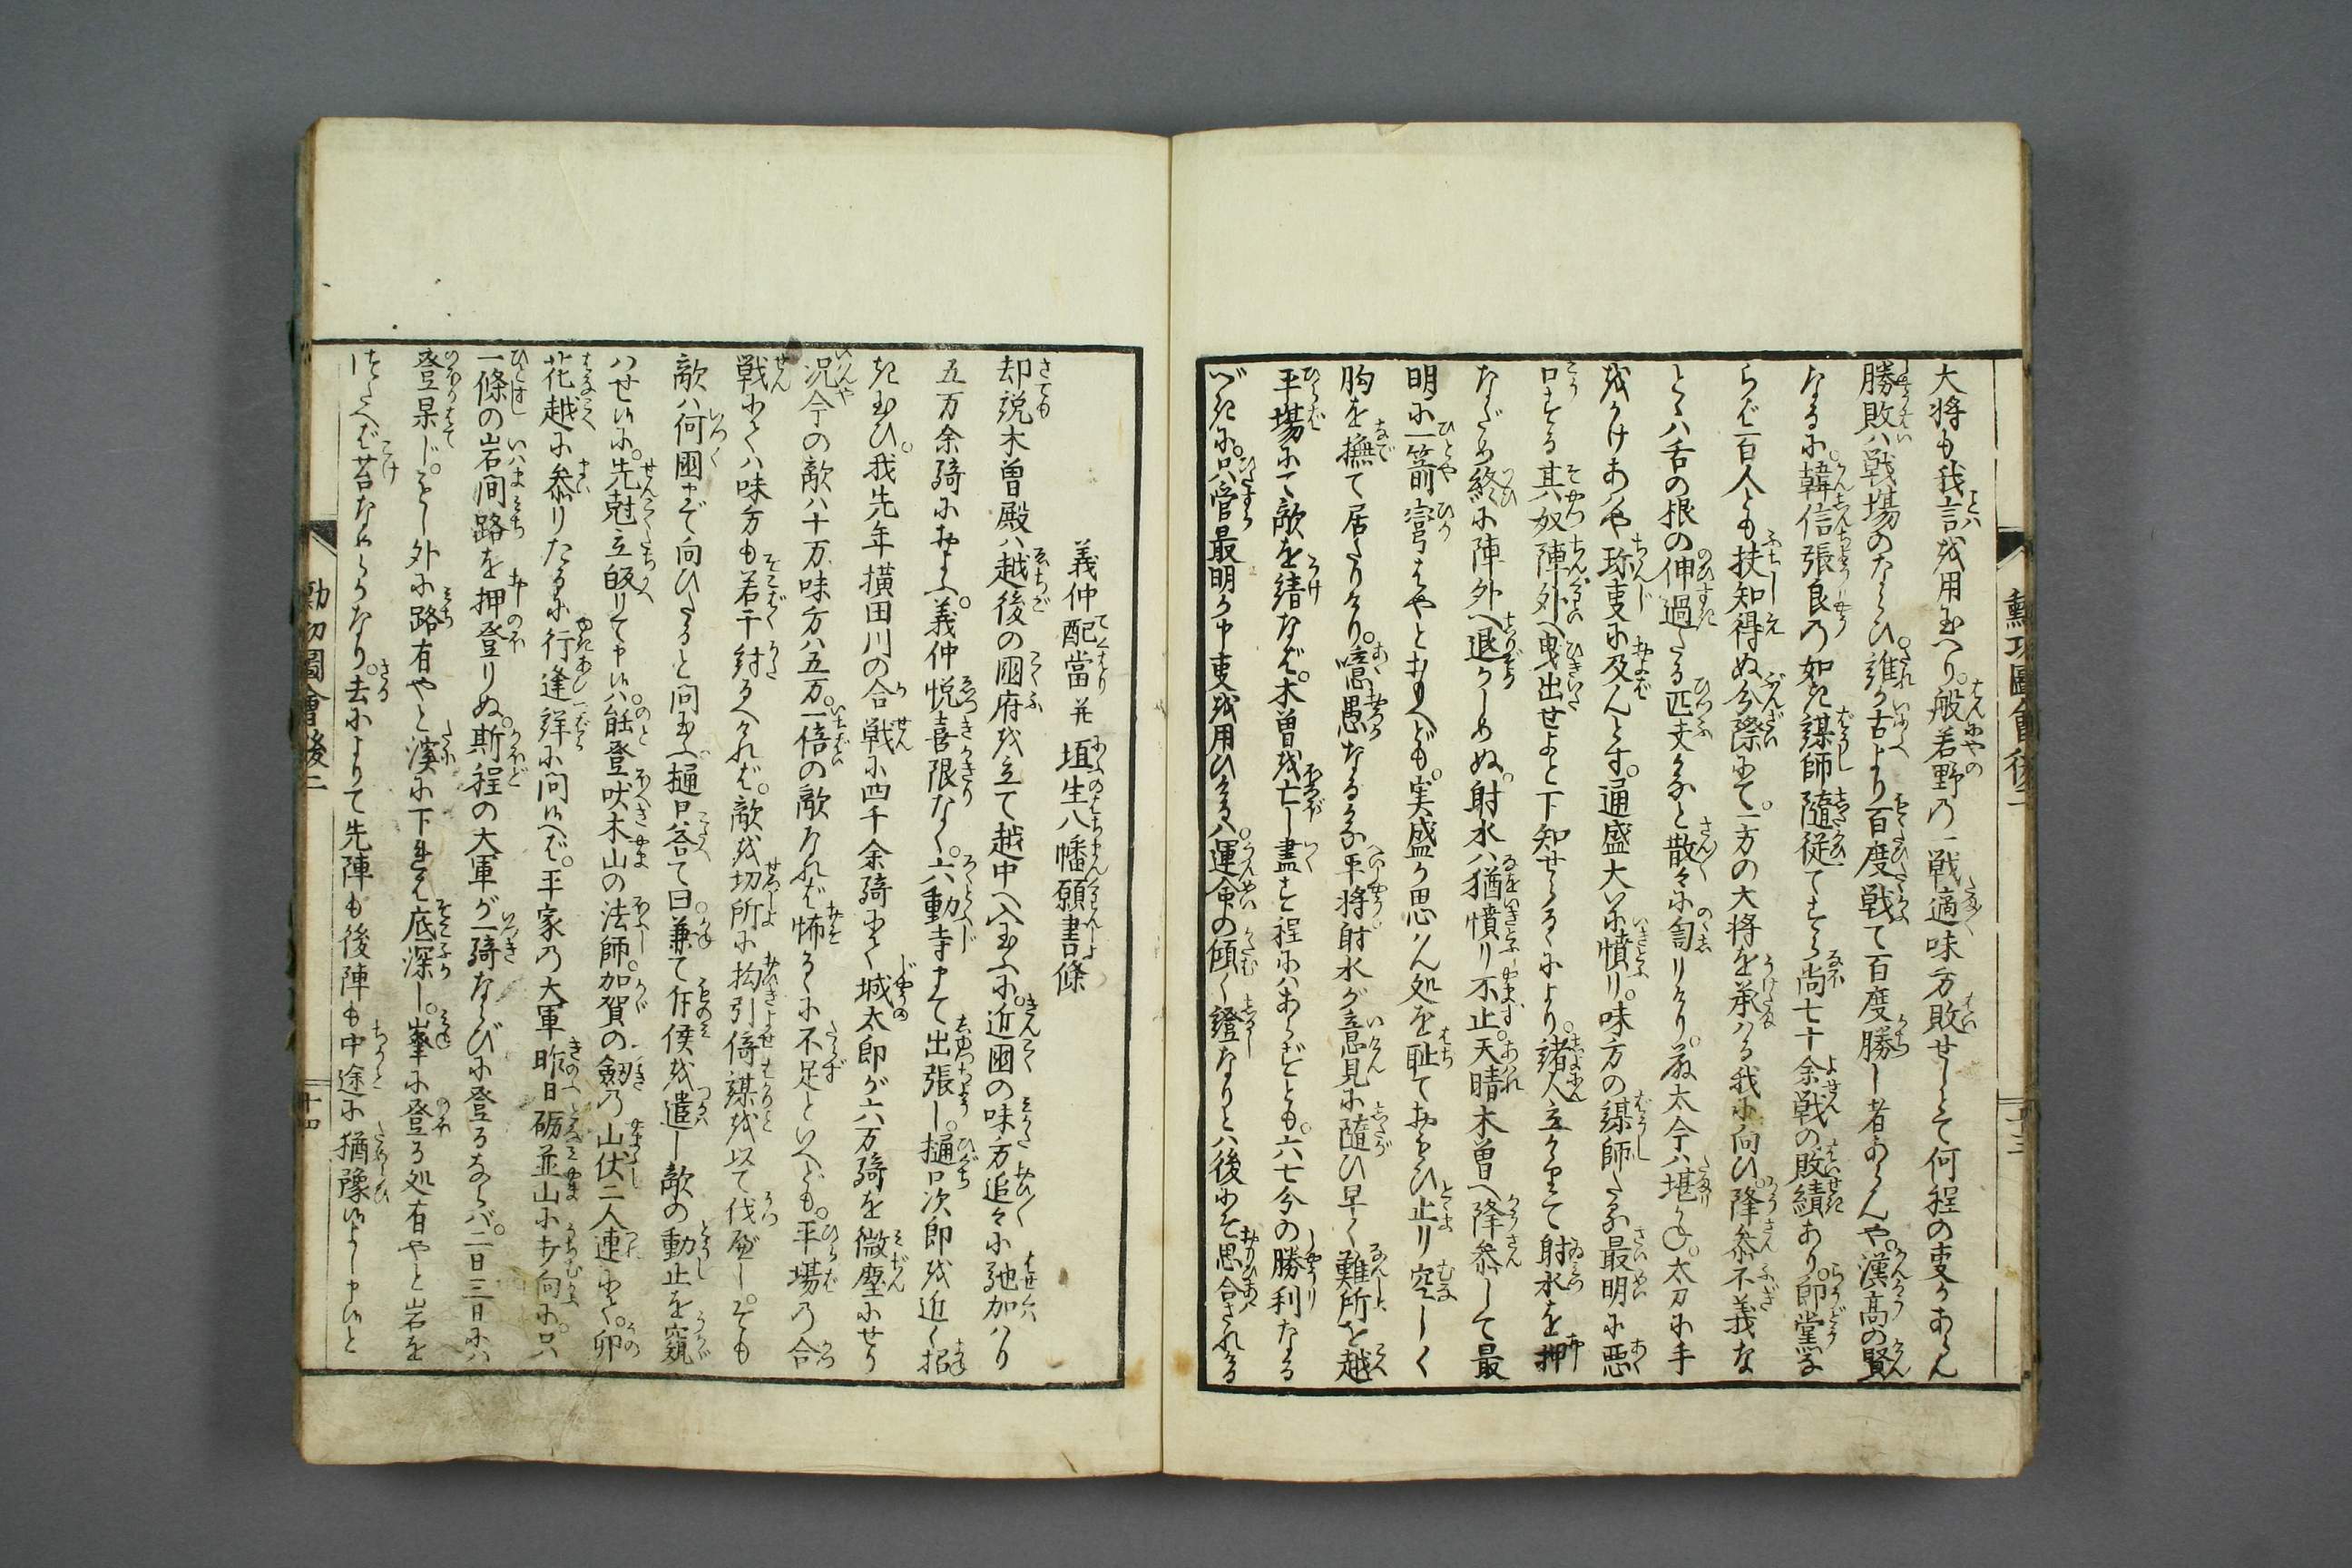 大将も我言を用玉へり。般若野の一戦適味方敗せしとて何程の事かあらん
勝敗ハ戦場のならひ。誰か古より百度戦て百度勝し者あらんや。漢高の賢
なるに。韓信張良の如き謀師随従てすら尚七十余戦の敗績あり。郎党な
らバ一百人とも扶知得ぬ分際にて。一方の大将を承ハる我に向ひ。降参不義な
とゝハ舌の根の伸過たる匹夫かなと散々に訇りけり。 太今ハ堪かね。太刀に手
をかけあハや珍事に及んとす。通盛大いに憤り。味方の謀師たる最明に悪
口する其奴陣外へ曳出せよと下知せらるゝにより。諸人立かゝりて射水を押
なだめ終に陣外へ退かしめぬ。射水ハ猶憤り不止。天晴木曽へ降参して最
明に一箭寫はやとおもへども。実盛が思ハん処を耻ておもひ止り空しく
胸を撫て居たりけり。噫愚なるかな平将射水が意見に随ひ早く難所を越
平場にて敵を請なバ。木曽を亡し盡す程にハあらずとも。六七分の勝利なる
べきに。只管最明が申事を用ひけるハ。運命の傾く證なりとハ後にぞ思合されける
勲功圖會後二
十三
義仲配當并埴生八幡願書條
却説木曽殿ハ越後の國府を立て越中へ入玉ふに。近國の味方追々に馳加ハり
五万余騎におよふ。義仲悦喜限なく。六動寺まて出張し。樋口次郎を近く招
き玉ひ。我先年横田川の合戦に四千余騎にて城太郎が六万騎を微塵にせり
況今の敵ハ十万味方ハ五万。一倍の敵なれバ怖るゝに不足といへども。平場の合
戦にてハ味方も若干討るべけれバ。敵を切所に拘引倚謀を以て伐べし。そも
敵ハ何國まで向ひたると問玉ふ。樋口答て曰。兼て斥候を遣し敵の動止を窺
ハせ候に。先尅立皈りて申候ハ。能登吠木山の法師。加賀の劔の山伏二人連にて。卯
花越に参りたるに行逢詳に問候へバ。平家の大軍昨日砺並山に打向に。只
一條の岩間路を押登りぬ。斯程の大軍が一騎ならびに登るならバ。二日三日にハ
登果じ。もし外に路有やと渓に下れは底深し。峯に登る処有やと岩を
つたへバ苔なめらかなり。去によりて先陣も後陣も中途に猶豫候よし申候と
勲功圖會後二
十四